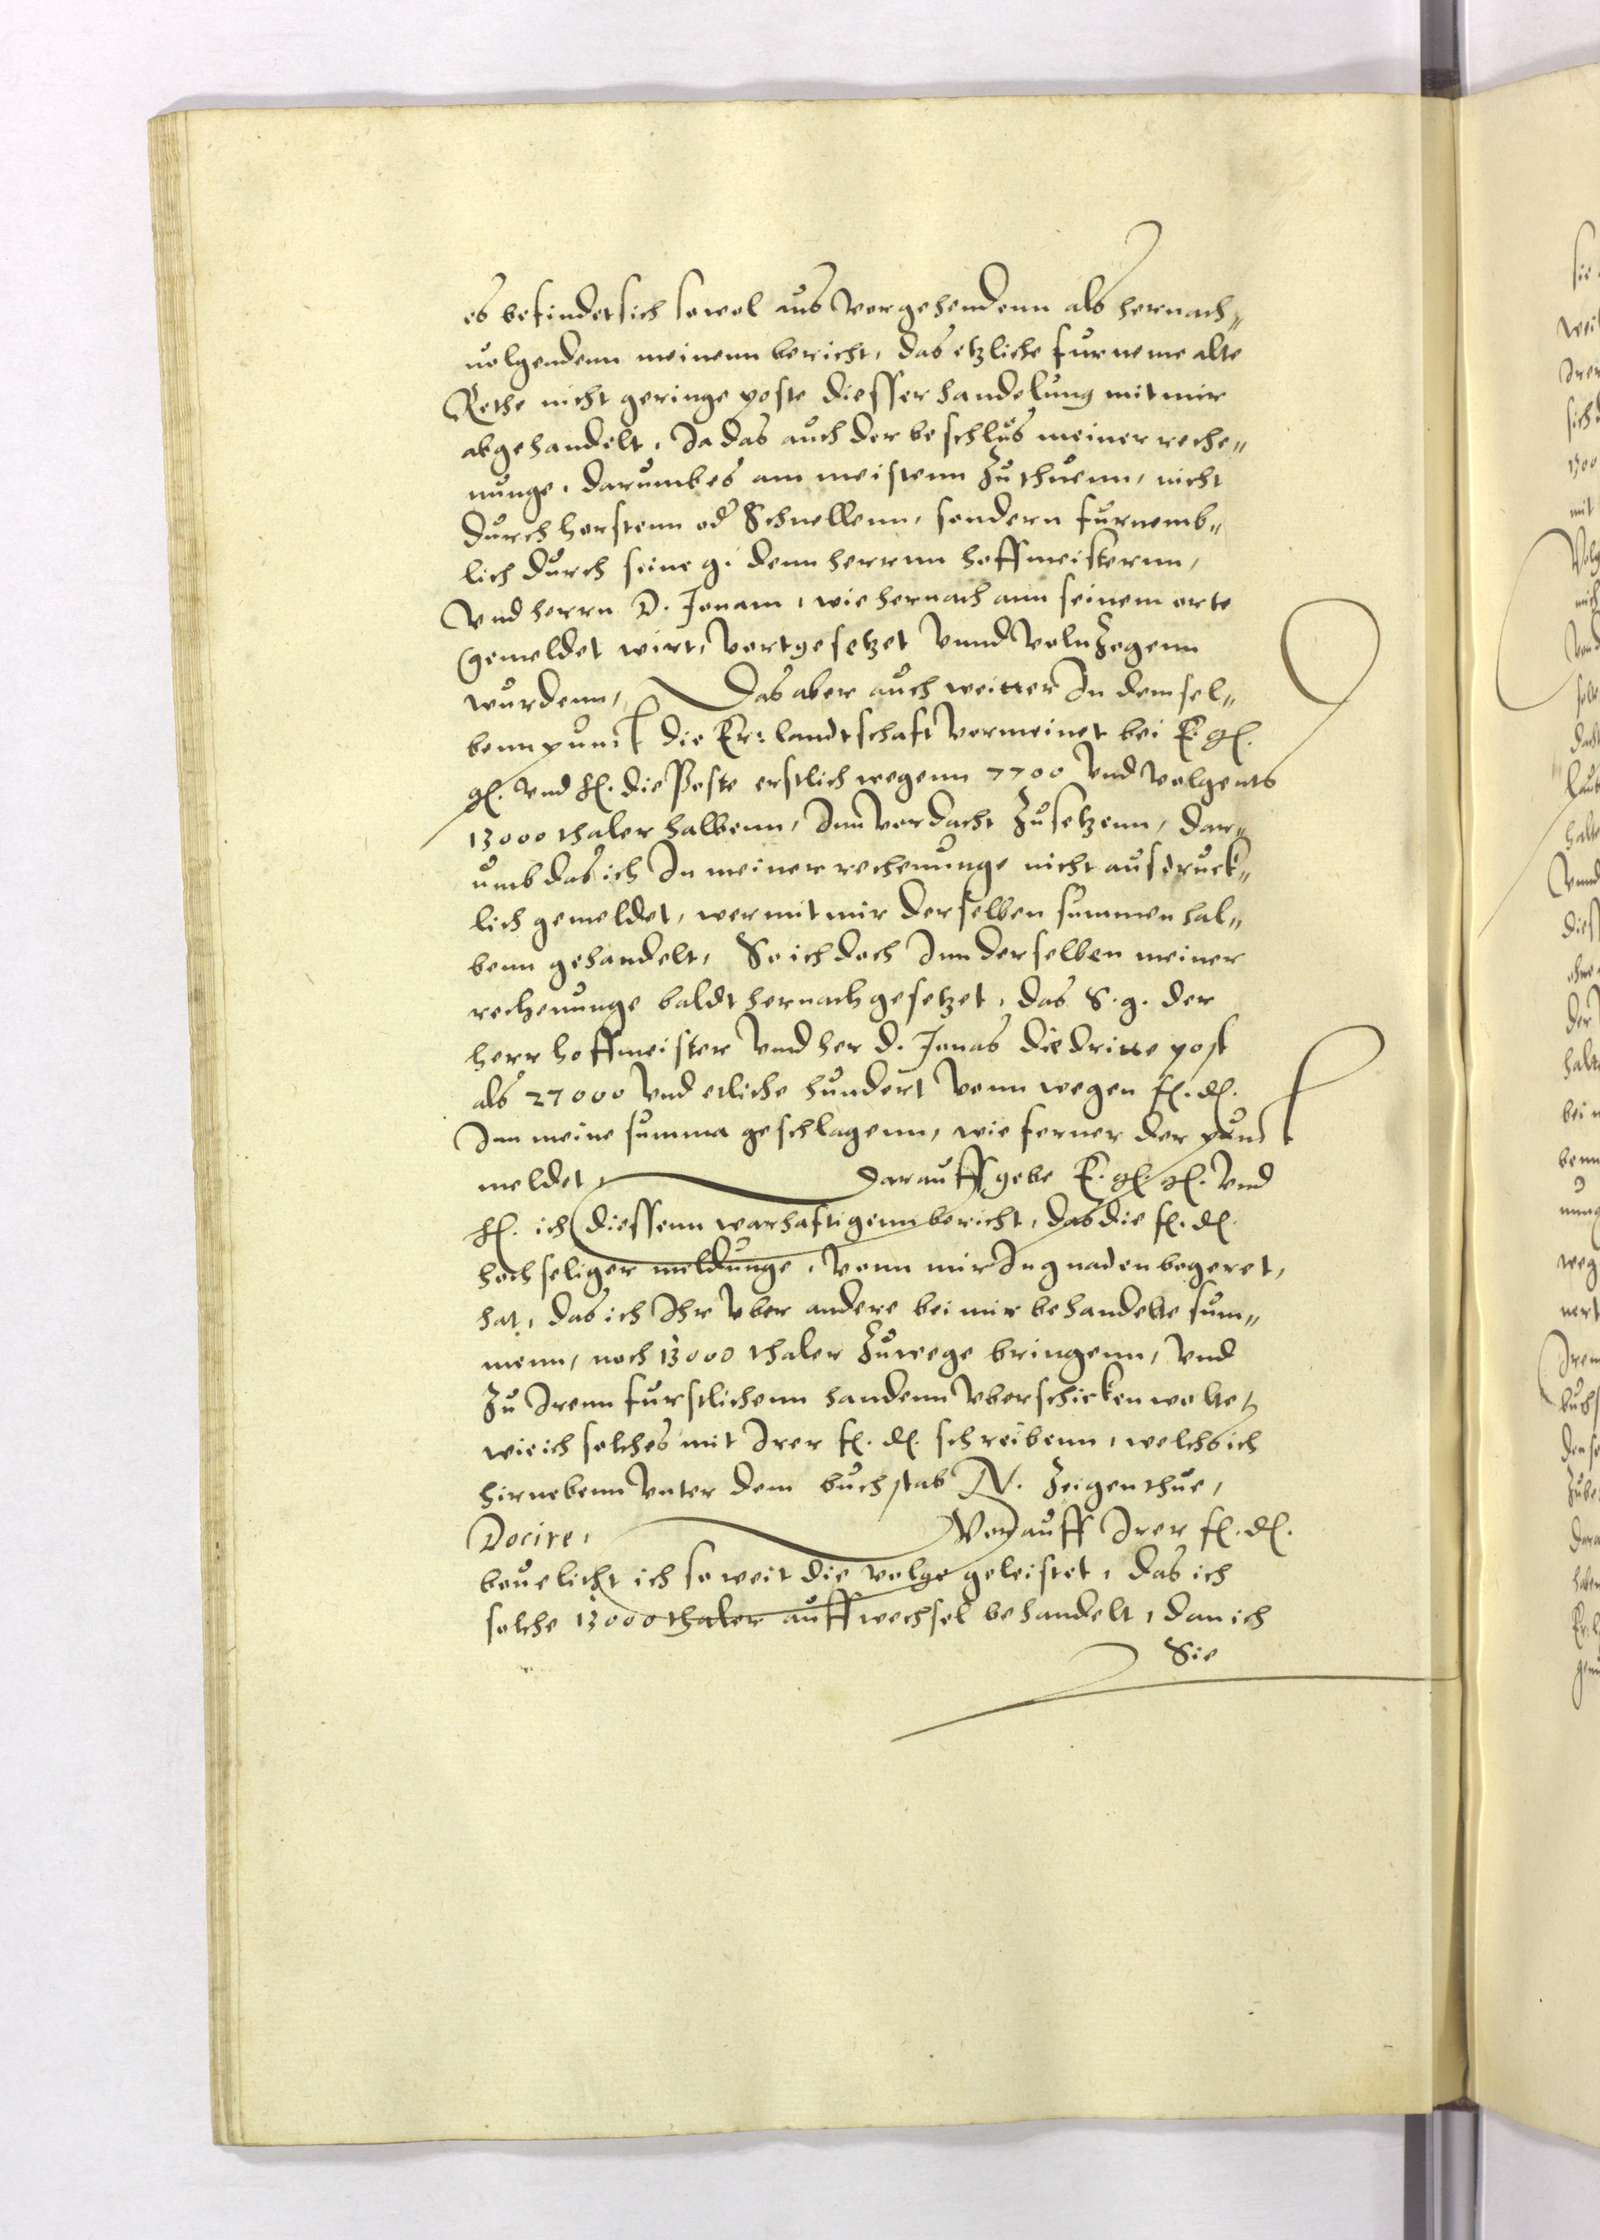 es befindet sich sowol aus vorgehendenn als hernach„
uolgendenn meinenn bericht, das etzliche furneme alte
Rethe nicht geringe poste diesser handelung mit mir
abgehandelt, Ja das auch der beschlus meiner reche„
nunge, darumb es am meistenn zu thuenn, nicht
durch horstenn od Schnellenn, sondern furnemb„
lich durch seine g. denn herrnn hoffmeisternn,
Vnd herrn D. Jonam, wie hernach ann seinem orte
gemeldet wirt, vortgesetzet Vnnd Volnzogenn
wurdenn, Das aber auch weitter In demsel„
benn punct die Er: landtschaft vormeinet bei E. gl.
gl. vnd hl. die Poste erstlich wegenn 7700 Vnd volgents
13000 thaler halbenn, Inn vordacht zusetzenn, dar„
umb das ich In meiner rechenunge nicht ausdruck„
lich gemeldet, wer mit mir derselben summen hal„
benn gehandelt, So ich doch Inn derselben meiner
rechenunge baldt hernach gesetzet, das S. g. der
herr hoffmeister Vnd her d. Jonas die dritte post
als 27000 Vnd etliche hundert vonn wegen fl. dl.
Inn meine summa geschlagenn, wie ferner der punct
meldet, Darauff gebe E. gl. gl. Vnd
hl. ich diessenn warhaftigenn bericht, das die fl. dl.
hochseliger meldunge, vonn mir In gnaden begeret,
hat, das ich Ihr vber andere bei mir behandelte sum„
menn, noch 13000 thaler zuwege bringenn, vnd
zu Irenn furstlichenn handenn vberschicken wolte,
wie ich solches mit Irer fl. dl. schreibenn, welchs ich
hirnebenn vnter dem buchstab N. zeigen thue,
Docire, Vorauff Irer fl. dl.
beuelicht ich so weit die volge geleistet, das ich
solche 13000 thaler auff wechsel behandelt, dan ich
Sie